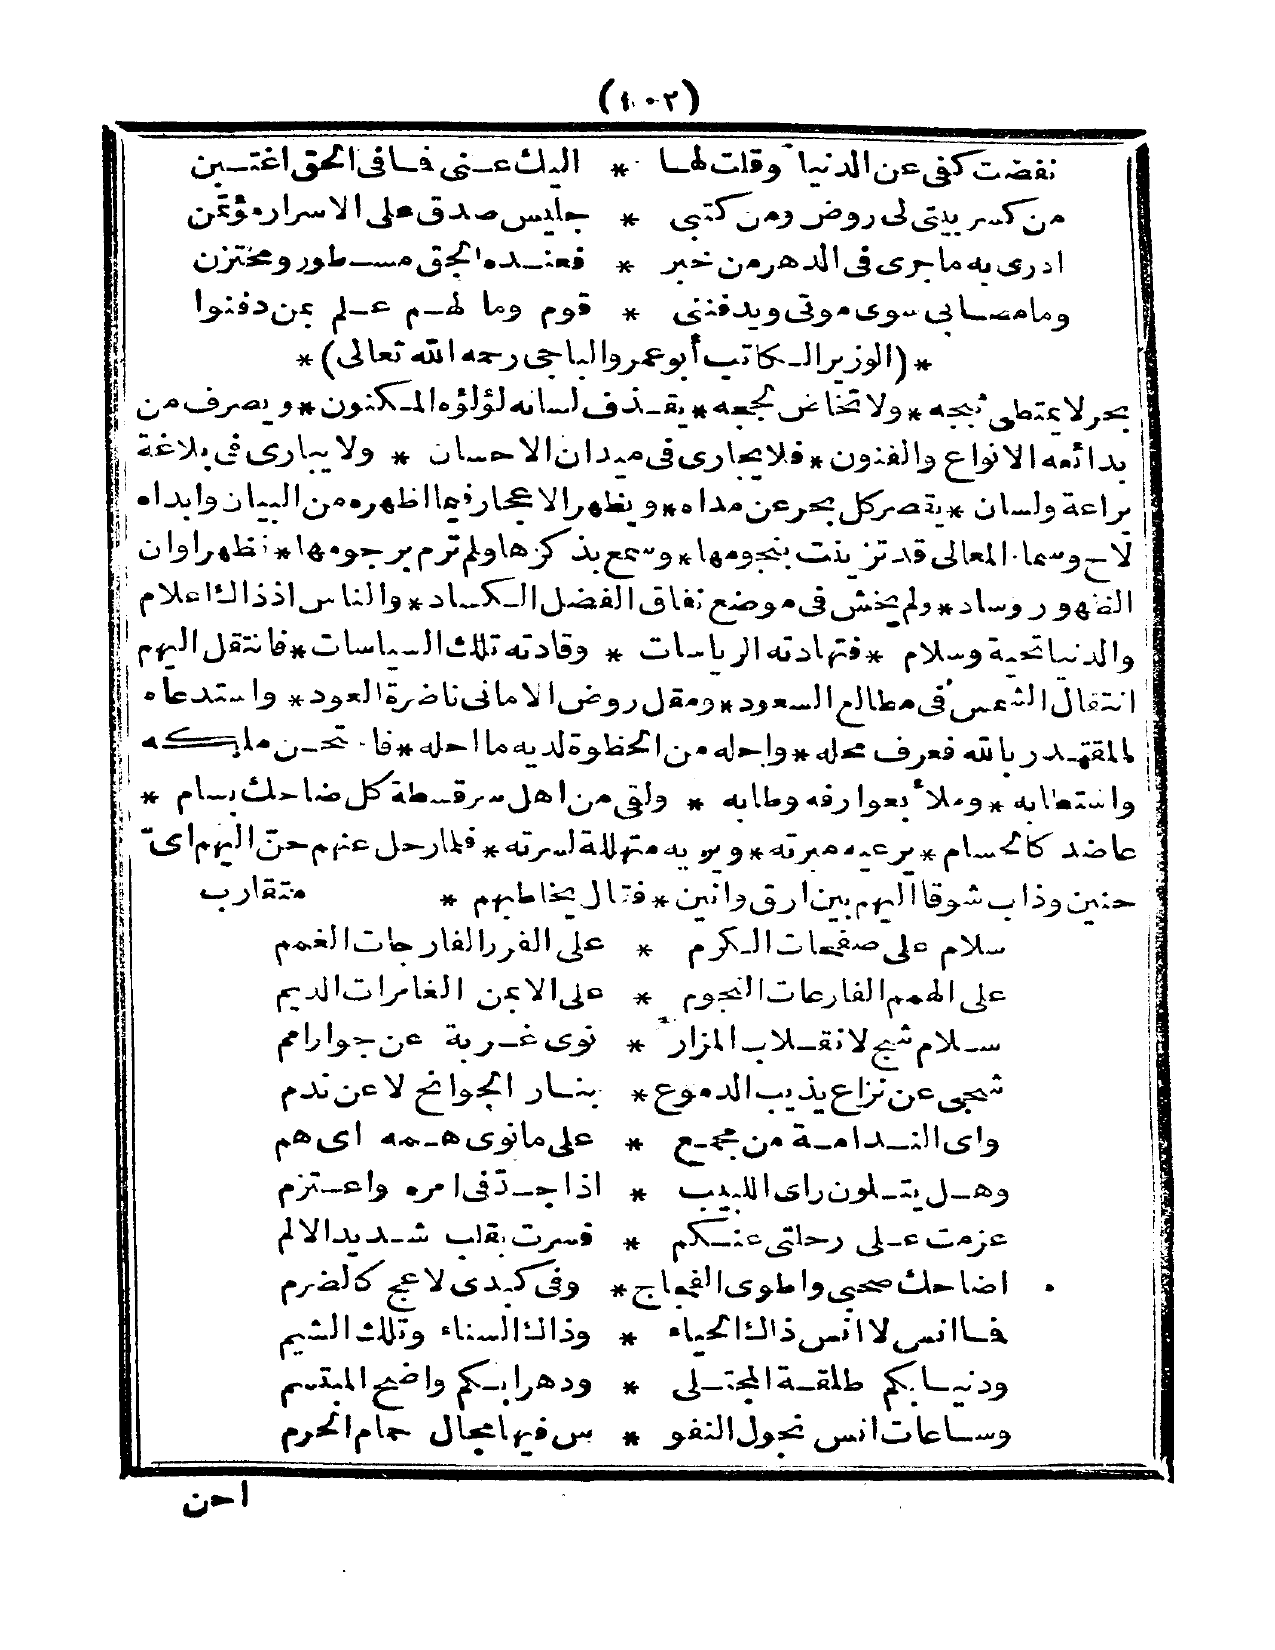 (١٠٢)
نفضت كفي عن الدنيا وقلت لها * اليك عني فما في الحق اغتبن
من كسر بيتي لي روض ومن كتبي * جليس صدق على الاسرار مؤتمن
ادرى به ماجرى في الدهر من خبر * فعنده الحق مسطور ومختزن
وما مصابي سوى موتي ويدفنني * قوم وما لهم علم بمن دفنوا
* (الوزير الكاتب أبو عمرو الباجي رحمه الله تعالى) *
بحر لا يمتطى ثبجه * ولا تخاض لججه * يقذف لسانه لؤلؤه المكنون * ويصرف من
بدائعه الانواع والفنون * فلا يجارى في ميدان الاحسان * ولا يبارى في بلاغة
براعة ولسان * يقصر كل بحر عن مداه * ويظهر الاعجاز فيما اظهره من البيان وابداه
لاح وسماء المعالى قد تزينت بنجومها * وسمع بذكرها ولم ترم برجومها * فظهر اوان
الظهور وساد * ولم يخش في موضع نفاق الفضل الكساد * والناس اذذاك اعلام
والدنيا تحية وسلام * فتهادته الرياسات * وقادته تلك السياسات * فانتقل اليهم
انتقال الشمس في مطالع السعود * ومقل روض الاماني ناضرة العود * واستدعاه
المقتدر بالله فعرف محله * واحله من الحظوة لديه ما احله * فا تحن مليكه
واستطابه * وملأ بعوارفه وطابه * ولقي من اهل سرقسطة كل ضاحك بسام *
عاضد كالحسام * يرعيه مبرته * ويريه متهللة اسرته * فلما رحل عنهم حنّ اليهم اىّ
حنين وذاب شوقا اليهم بين ارق وانين * فقال يخاطبهم * متقارب
سلام على صفحات الكرم * على الغرر الفارجات الغمم
على الهمم الفارعات النجوم * على الايمن الغامرات الديم
سلام شج لانقلاب المزار * نوى غربة عن جوار امم
شجى عن نزاع يذيب الدموع * بنار الجوانح لا عن ندم
واى الندامة من مجمع * على مانوى همه اى هم
وهل يتلون راى اللبيب * اذا جد في امره واعتزم
عزمت على رحلتي عنكم * فسرت بقلب شديد الالم
اضاحك صحبي واطوى الفجاج * وفي كبدى لاعج كالضرم
فما انس لا انس ذاك الحياء * وذاك السناء وتلك الشيم
ودنيا بكم طلقة المجتلى * ودهرا بكم واضح المبتسم
وساعات انس تجول النفو * س فيها مجال حمام الحرم
احن